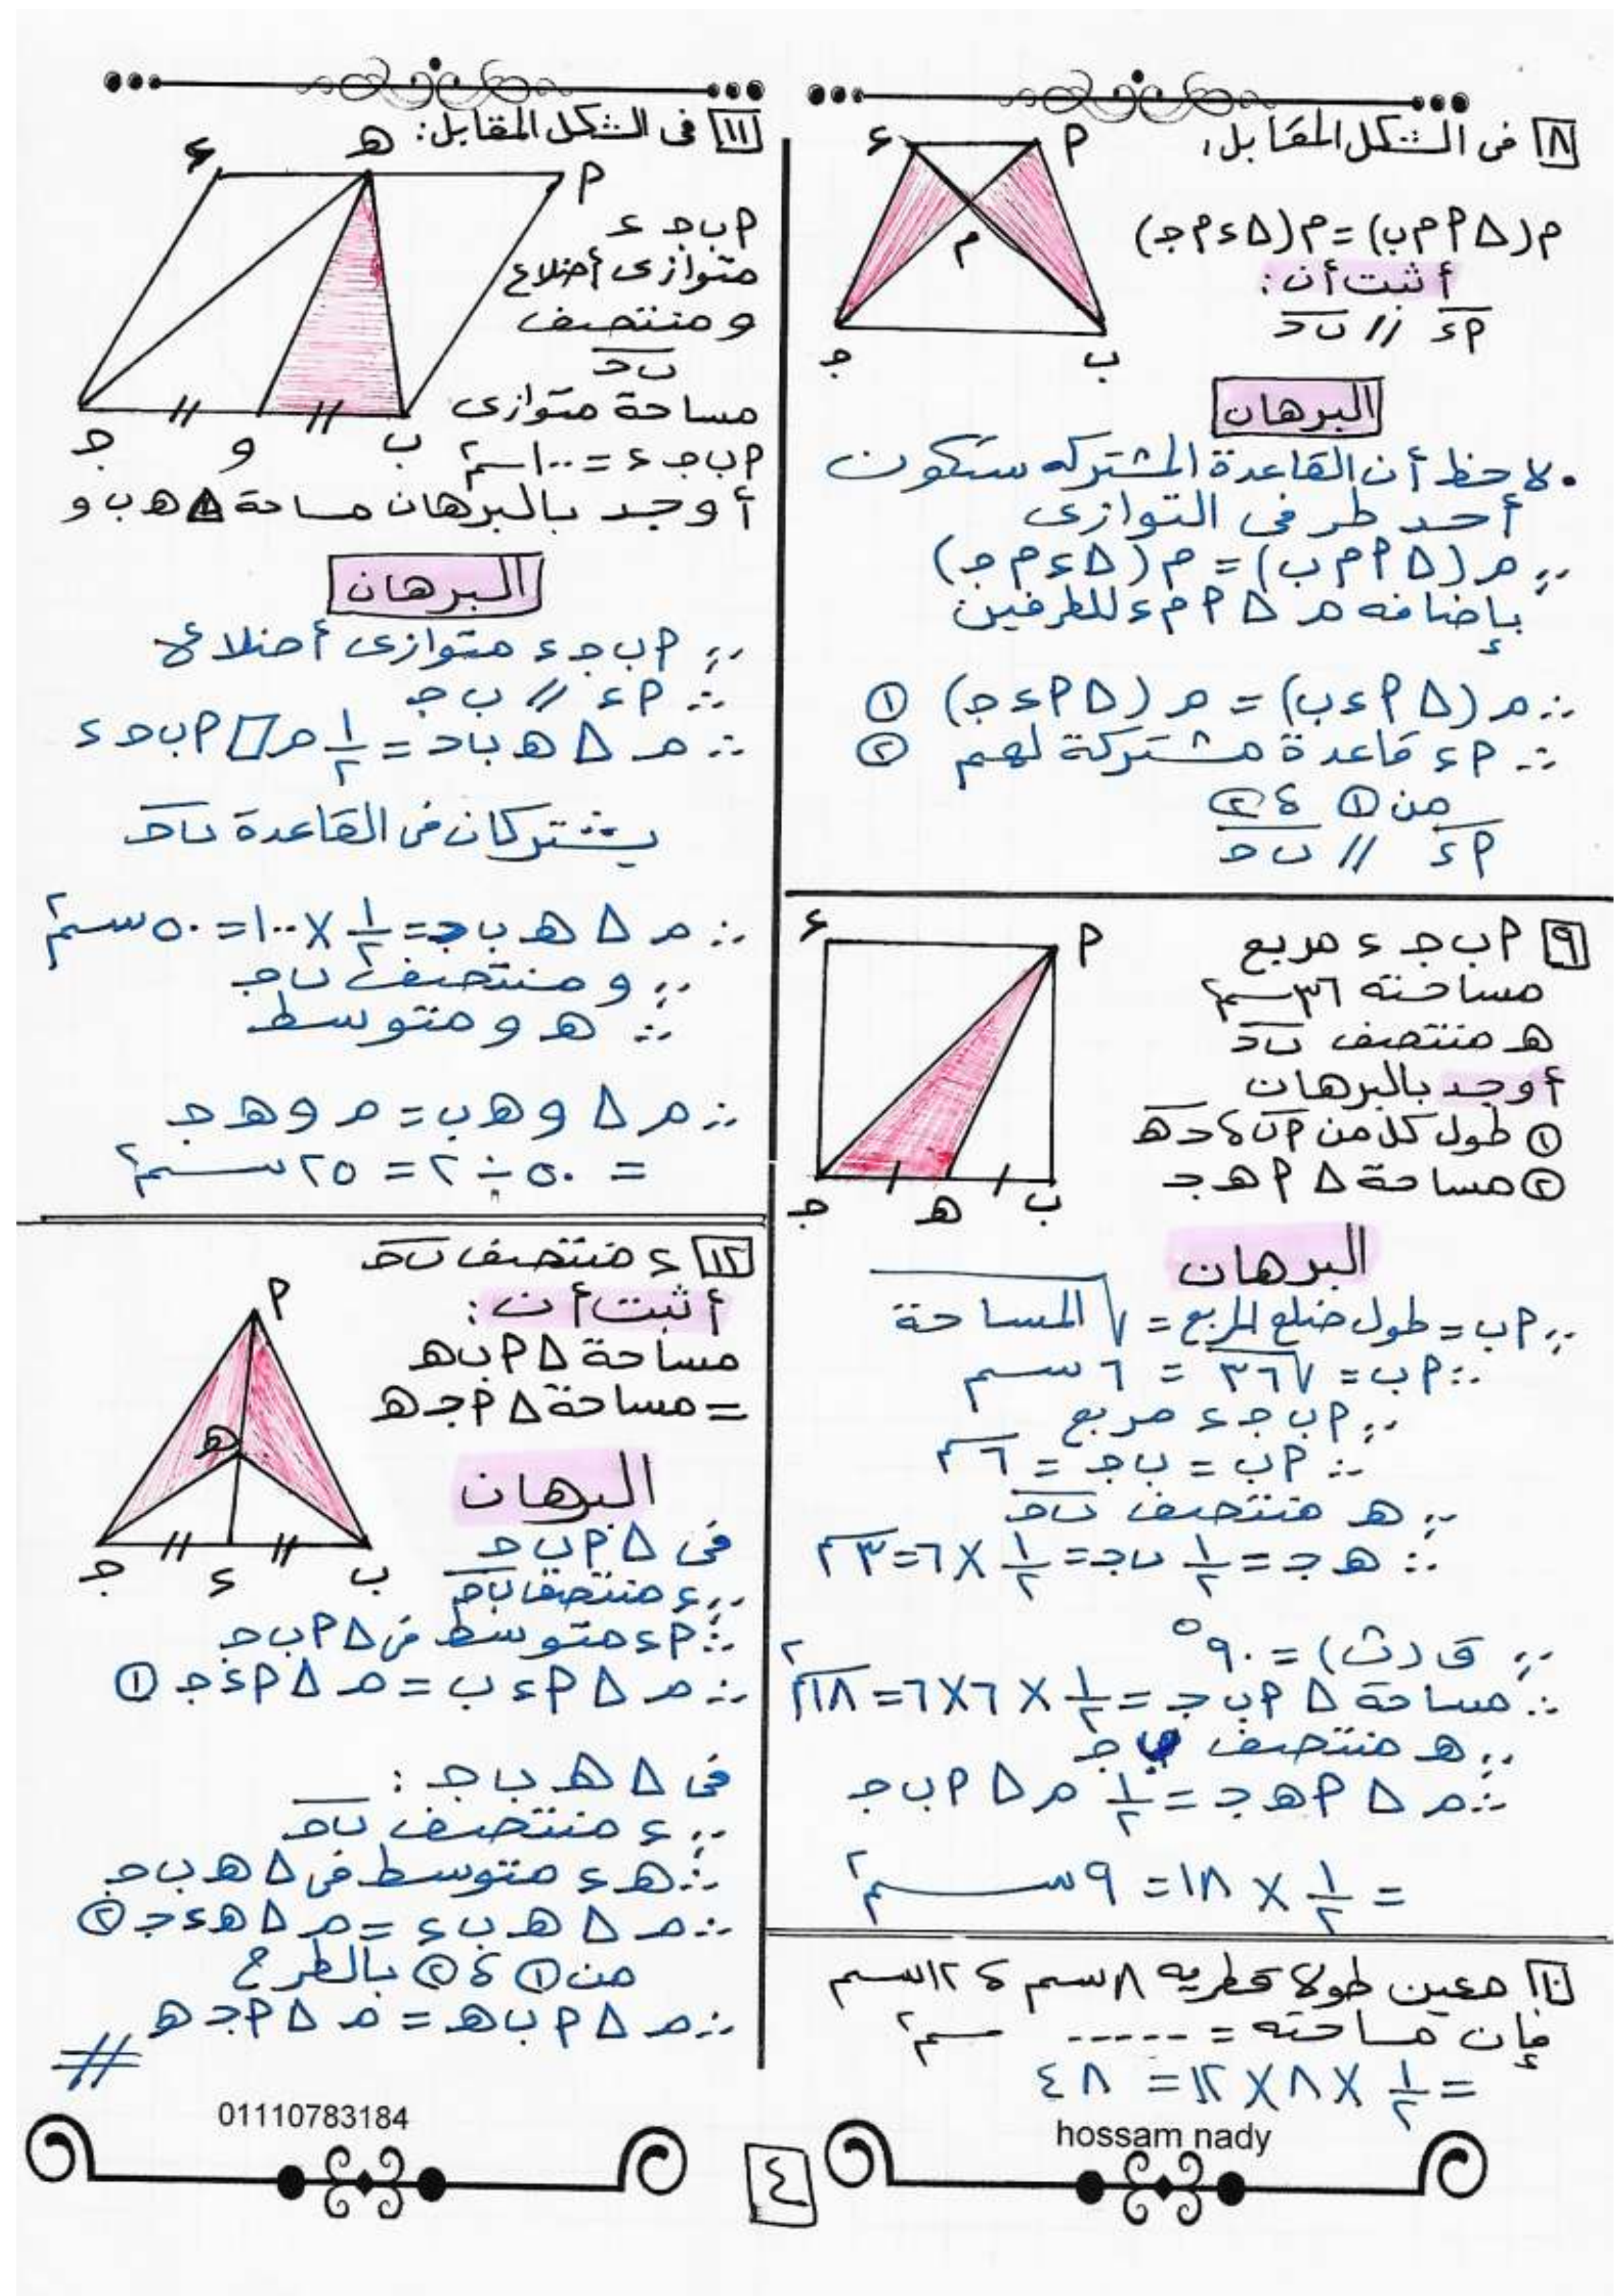 ٨ فى الشكل المقابل:
م(Δ أ م ب) = م(Δ ء م جـ)
أثبت أن:
أء // ب جـ
البرهان
• لاحظ أن القاعدة المشتركه ستكون
أحد طرفى التوازى
∵ م(Δ أ م ب) = م(Δ ء م جـ)
بإضافه م Δ أ م ء للطرفين
∴ م(Δ أ ء ب) = م(Δ أ ء جـ) ①
∵ أء قاعدة مشتركة لهم ②
من ① ، ②
أء // ب جـ
أ
ء
م
ب
جـ
٩ أ ب جـ ء مربع
مساحته ٣٦سم٢
هـ منتصف ب جـ
أوجد بالبرهان
① طول كل من أب ، جـ هـ
② مساحة Δ أ هـ جـ
أ
ء
ب
هـ
جـ
البرهان
∵ أب = طول ضلع المربع = √المساحة
∴ أب = √٣٦ = ٦ سم
∵ أ ب جـ ء مربع
∴ أب = ب جـ = ٦سم
∵ هـ منتصف ب جـ
∴ هـ جـ = ١/٢ ب جـ = ١/٢ × ٦ = ٣سم
∵ ق(ب) = ٩٠°
∴ مساحة Δ أ ب جـ = ١/٢ × ٦ × ٦ = ١٨سم٢
∵ هـ منتصف ب جـ
∴ م Δ أ هـ جـ = ١/٢ م Δ أ ب جـ
= ١/٢ × ١٨ = ٩ سم٢
١٠ معين طولا قطريه ٨سم ، ١٢سم
فإن مساحته = ----- سم٢
= ١/٢ × ٨ × ١٢ = ٤٨
hossam nady
١١ فى الشكل المقابل:
أ ب جـ ء
متوازى أضلاع
و منتصف
ب جـ
مساحة متوازى
أ ب جـ ء = ١٠٠سم٢
أوجد بالبرهان مساحة Δ هـ ب و
أ
هـ
ء
ب
و
جـ
البرهان
∵ أ ب جـ ء متوازى أضلاع
∴ أء // ب جـ
∴ م Δ هـ ب جـ = ١/٢ م ▱ أ ب جـ ء
يشتركان فى القاعدة ب جـ
∴ م Δ هـ ب جـ = ١/٢ × ١٠٠ = ٥٠ سم٢
∵ و منتصف ب جـ
∴ هـ و متوسط
∴ م Δ و هـ ب = م و هـ جـ
= ٥٠ ÷ ٢ = ٢٥ سم٢
١٢ ء منتصف ب جـ
أثبت أن:
مساحة Δ أ ب هـ
= مساحة Δ أ جـ هـ
أ
هـ
ب
ء
جـ
البرهان
فى Δ أ ب جـ
∵ ء منتصف ب جـ
∴ أء متوسط فى Δ أ ب جـ
∴ م Δ أ ء ب = م Δ أ ء جـ ①
فى Δ هـ ب جـ :
∵ ء منتصف ب جـ
∴ هـ ء متوسط فى Δ هـ ب جـ
∴ م Δ هـ ب ء = م Δ هـ ء جـ ②
من ① ، ② بالطرح
∴ م Δ أ ب هـ = م Δ أ جـ هـ
#
01110783184
٤